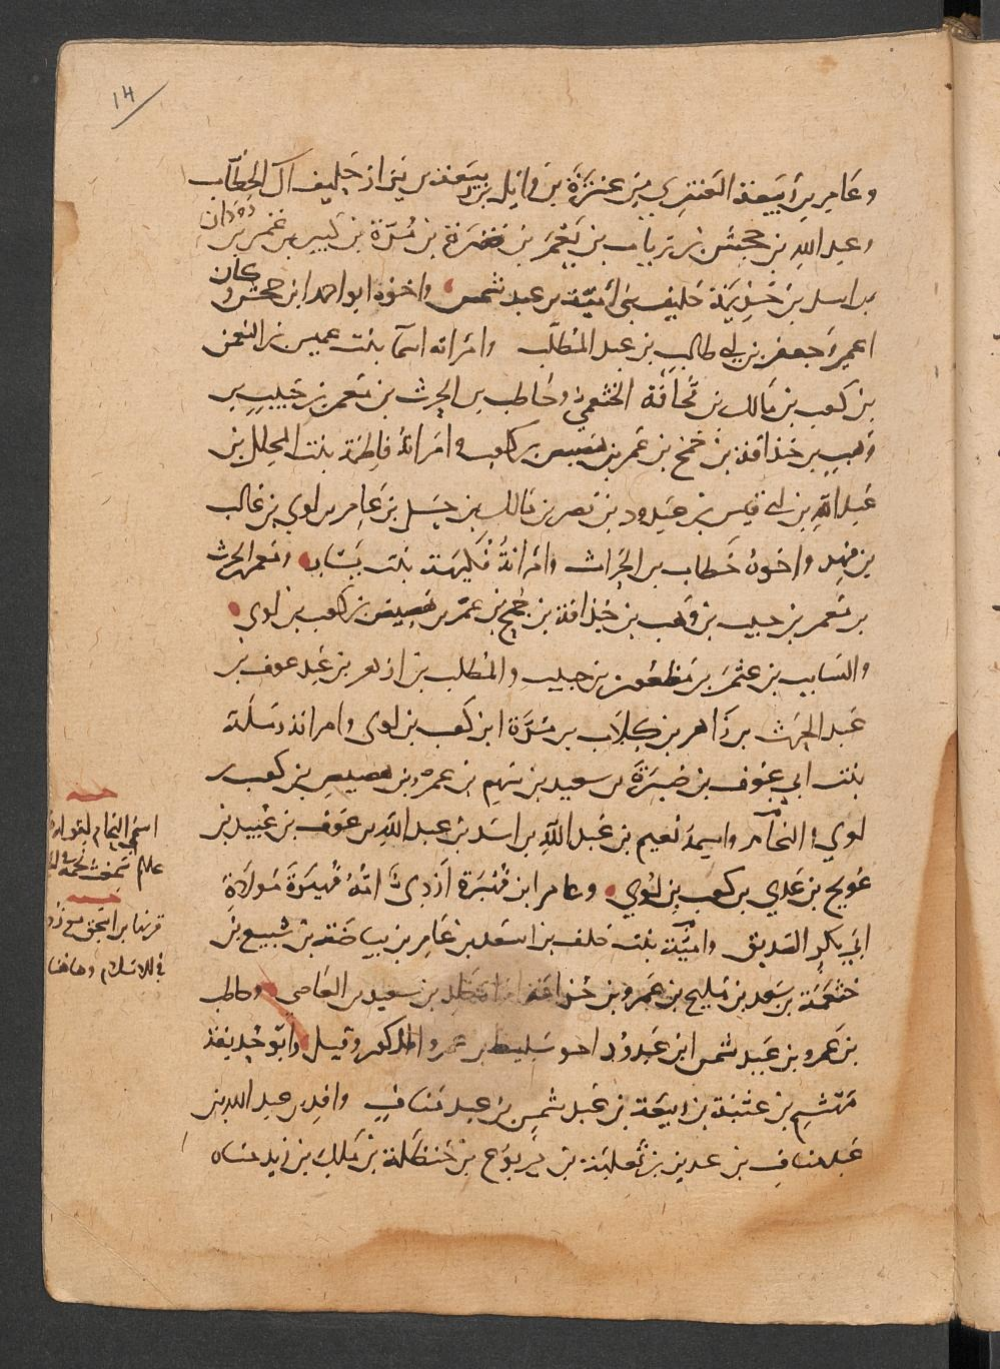 14
وعامر بن ربيعة العنزي من عنزة بن وايل بن ربيعة بن نزار حليف ال الخطاب
وعبد الله بن جحش بن رياب بن يعمر بن صبرة بن مرة بن كبير بن غنم بن دودان
بن اسد بن خزيمة حليف بني أمية بن عبد شمس واخوه ابو احمد ابن جحش وكان
اعمى وجعفر بن ابي طالب بن عبد المطلب وامراته اسما بنت عميس بن النعمن
بن كعب بن مالك بن قحافة الخثعمي وحاطب بن الحرث بن معمر بن حبيب بن
وهب بن حذافة بن جمح بن عمر بن هصيص بن كعب وامراته فاطمة بنت المجلل بن
عبد الله بن ابي قيس بن عبدود بن نصر بن مالك بن حسل بن عامر بن لوي بن غالب
بن فهر واخوه خطاب بن الحراث وامراته فكيهة بنت يسار ومعمر بن الحرث
بن معمر بن حبيب بن وهب بن حذافة بن جمح بن عمر بن هصيص بن كعب بن لوي
والسايب بن عثمن بن مظعون بن حبيب والمطلب بن ازهر بن عبد عوف بن
عبد الحرث بن زاهر بن كلاب بن مرة ابن كعب بن لوي وامراته رملة
بنت ابي عوف بن ضبرة بن سعيد بن سهم بن عمرو بن هصيص بن كعب بن
لوي والنحام واسمه نعيم بن عبد الله بن اسد بن عبد الله بن عوف بن عبيد بن
عويج بن عدي بن كعب بن لوي وعامر ابن فهيرة ازدي امه فهيرة مولاة
ابي بكر الصديق وامينة بنت خلف بن اسعد بن عامر بن بياضة بن سبيع بن
خثعمة بن سعد بن مليح بن عمرو بن خزاعة امراة خالد بن سعيد بن العاصي وحاطب
بن عمرو بن عبد شمس ابن عبدود اخو سليط بن عمرو المذكور وقيل وابو حذيفة
مهشم بن عتبة بن ربيعة بن عبد شمس بن عبد مناف وواقد بن عبد الله بن
عبد مناف بن عرين بن ثعلبة بن يربوع بن حنظلة بن ملك بن زيد مناه
اسم النحام لقوله